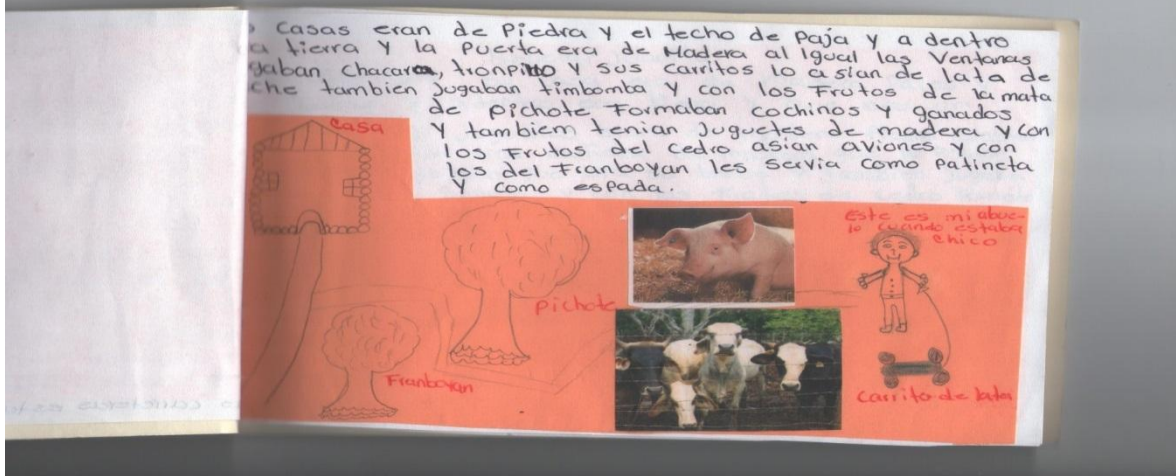 casas eran de Piedra y el techo de Paja y a dentro
a tierra y la Puerta era de Madera al Igual las Ventanas
gaban chacara, tronpito y sus carritos lo asian de lata de
che tambien Jugaban timbomba y con los Frutos de la mata
de pichote Formaban cochinos y ganados
y tambiem tenian Juguetes de madera y con
los Frutos del cedro asian aviones y con
los del Franboyan les servia como patineta
y como espada.
casa
Este es mi abue-
lo cuando estaba
chico
pichote
Franboyan
carrito de lata